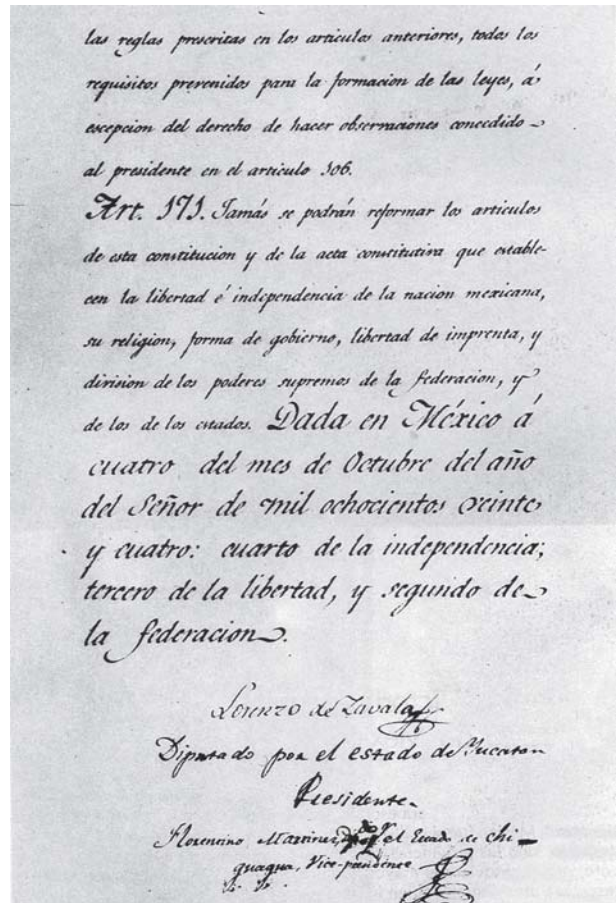 las reglas prescritas en los articulos anteriores, todos los
requisitos prevenidos para la formacion de las leyes, á
escepcion del derecho de hacer observaciones concedido
al presidente en el articulo 106.
Art. 171. Jamás se podrán reformar los articulos
de esta constitucion y de la acta constitutiva que estable-
cen la libertad é independencia de la nacion mexicana,
su religion, forma de gobierno, libertad de imprenta, y
division de los poderes supremos de la federacion, y
de los de los estados. Dada en México á
cuatro del mes de Octubre del año
del Señor de mil ochocientos veinte
y cuatro: cuarto de la independencia;
tercero de la libertad, y segundo de
la federacion.
Lorenzo de Zavala
Diputado por el estado de Yucatan
Presidente
Florentino Martinez, el Estado de Chi-
guagua, Vice-presidente